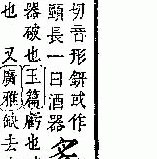 切音形鈃或作
頸長一曰酒器
器破也玉篇虧也
也又廣雅缺去